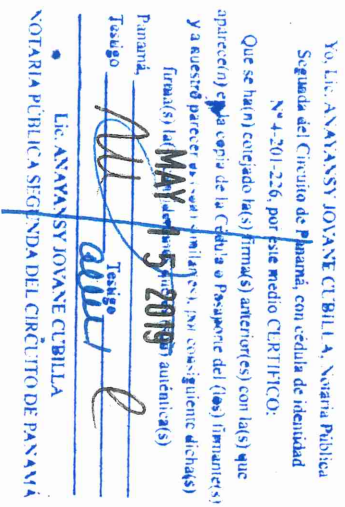 Yo, Lic. ANAYANSY JOVANE CUBILLA, Notaria Pública
Segunda del Circuito de Panamá, con cédula de identidad
N° 4-201-226, por este medio CERTIFICO:
Que se ha(n) cotejado la(s) firma(s) anterior(es) con la(s) que
aparece(n) en la copia de la Cédula o Pasaporte del (los) firmante(s)
y a nuestro parecer son similares, por consiguiente dicha(s)
firma(s) auténtica(s)
MAY 15 2019
Panamá,
Testigo Testigo
Lic. ANAYANSY JOVANE CUBILLA
NOTARIA PÚBLICA SEGUNDA DEL CIRCUITO DE PANAMÁ